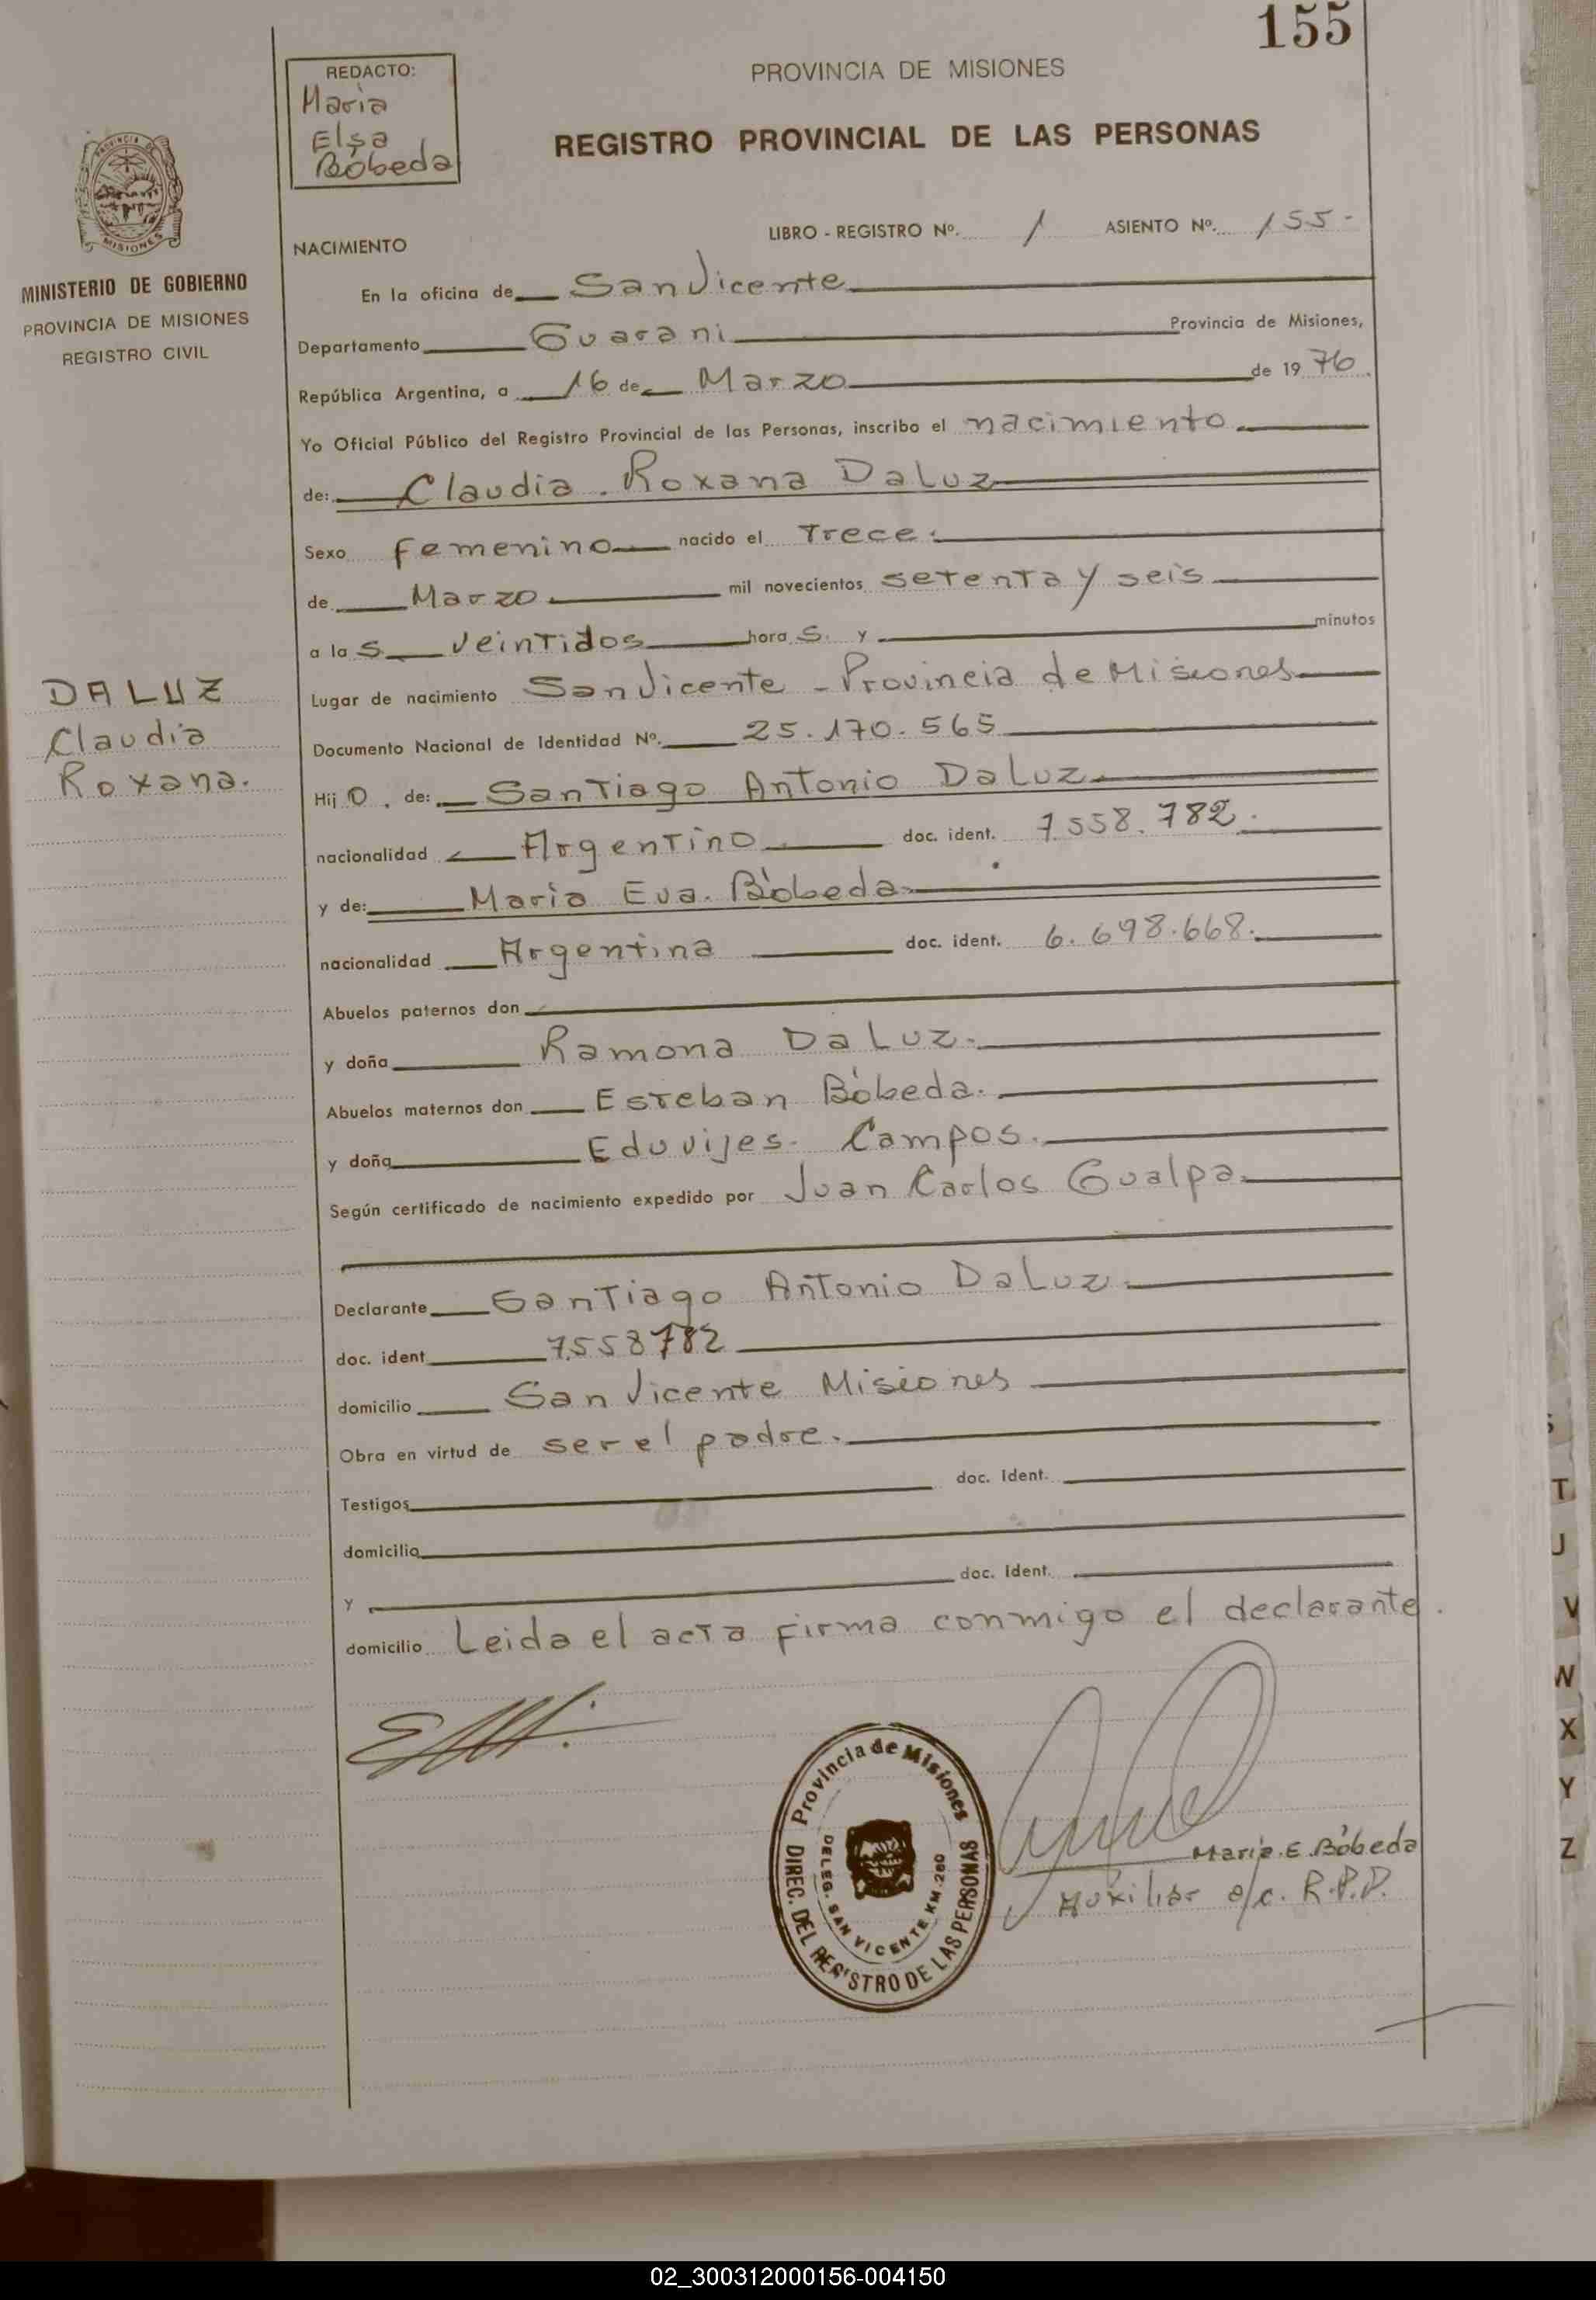 155
REDACTO:
Maria
Elsa
Bóbeda
PROVINCIA DE MISIONES
REGISTRO PROVINCIAL DE LAS PERSONAS
PROVINCIA DE
MISIONES
MINISTERIO DE GOBIERNO
PROVINCIA DE MISIONES
REGISTRO CIVIL
NACIMIENTO
LIBRO - REGISTRO Nº. 1 ASIENTO Nº. 155-
En la oficina de San Vicente
Departamento Guarani Provincia de Misiones,
República Argentina, a 16 de Marzo de 1976.
Yo Oficial Público del Registro Provincial de las Personas, inscribo el nacimiento
de: Claudia Roxana DaLuz
Sexo femenino nacido el Trece
de Marzo mil novecientos setenta y seis
a las veintidos horas. y minutos
Lugar de nacimiento San Vicente - Provincia de Misiones
Documento Nacional de Identidad Nº. 25.170.565
Hijo. de: Santiago Antonio DaLuz
nacionalidad Argentino doc. ident. 7.558.782.
y de: Maria Eva. Bóbeda
nacionalidad Argentina doc. ident. 6.698.668.
Abuelos paternos don
y doña Ramona DaLuz.
Abuelos maternos don Esteban Bóbeda.
y doña Eduvijes. Campos.
Según certificado de nacimiento expedido por Juan Carlos Gualpa
Declarante Santiago Antonio DaLuz
doc. ident 7.558782
domicilio San Vicente Misiones
Obra en virtud de ser el padre.
Testigos doc. Ident.
domicilio
y doc. Ident.
domicilio Leida el acta firma conmigo el declarante.
DALUZ
Claudia
Roxana.
Provincia de Misiones
DIREC. DEL REGISTRO DE LAS PERSONAS
DELEG. SAN VICENTE KM. 260
Maria. E. Bóbeda
Auxiliar a/c. R.P.P.
T
J
V
W
X
Y
Z
02_300312000156-004150